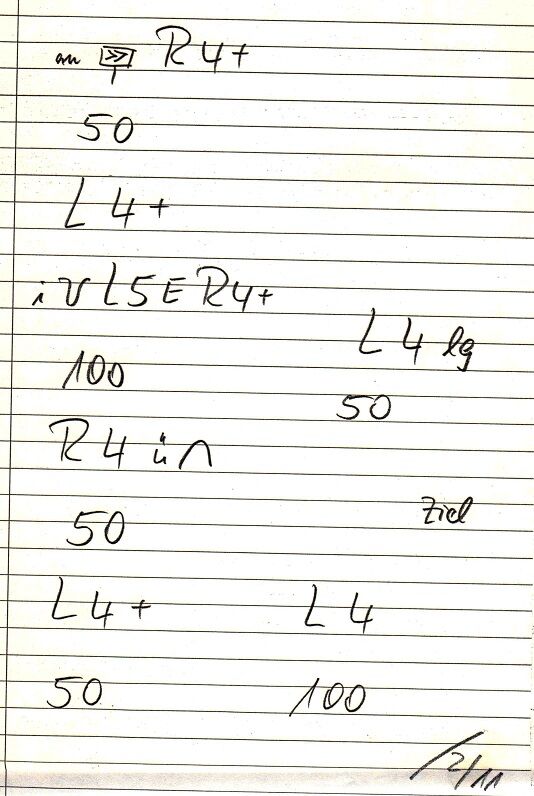 an >> R 4+
50
L 4+
i V L5 E R4+
100
R 4 ü ∩
50
L 4+
50
L 4 lg
50
Ziel
L 4
100
/2/11